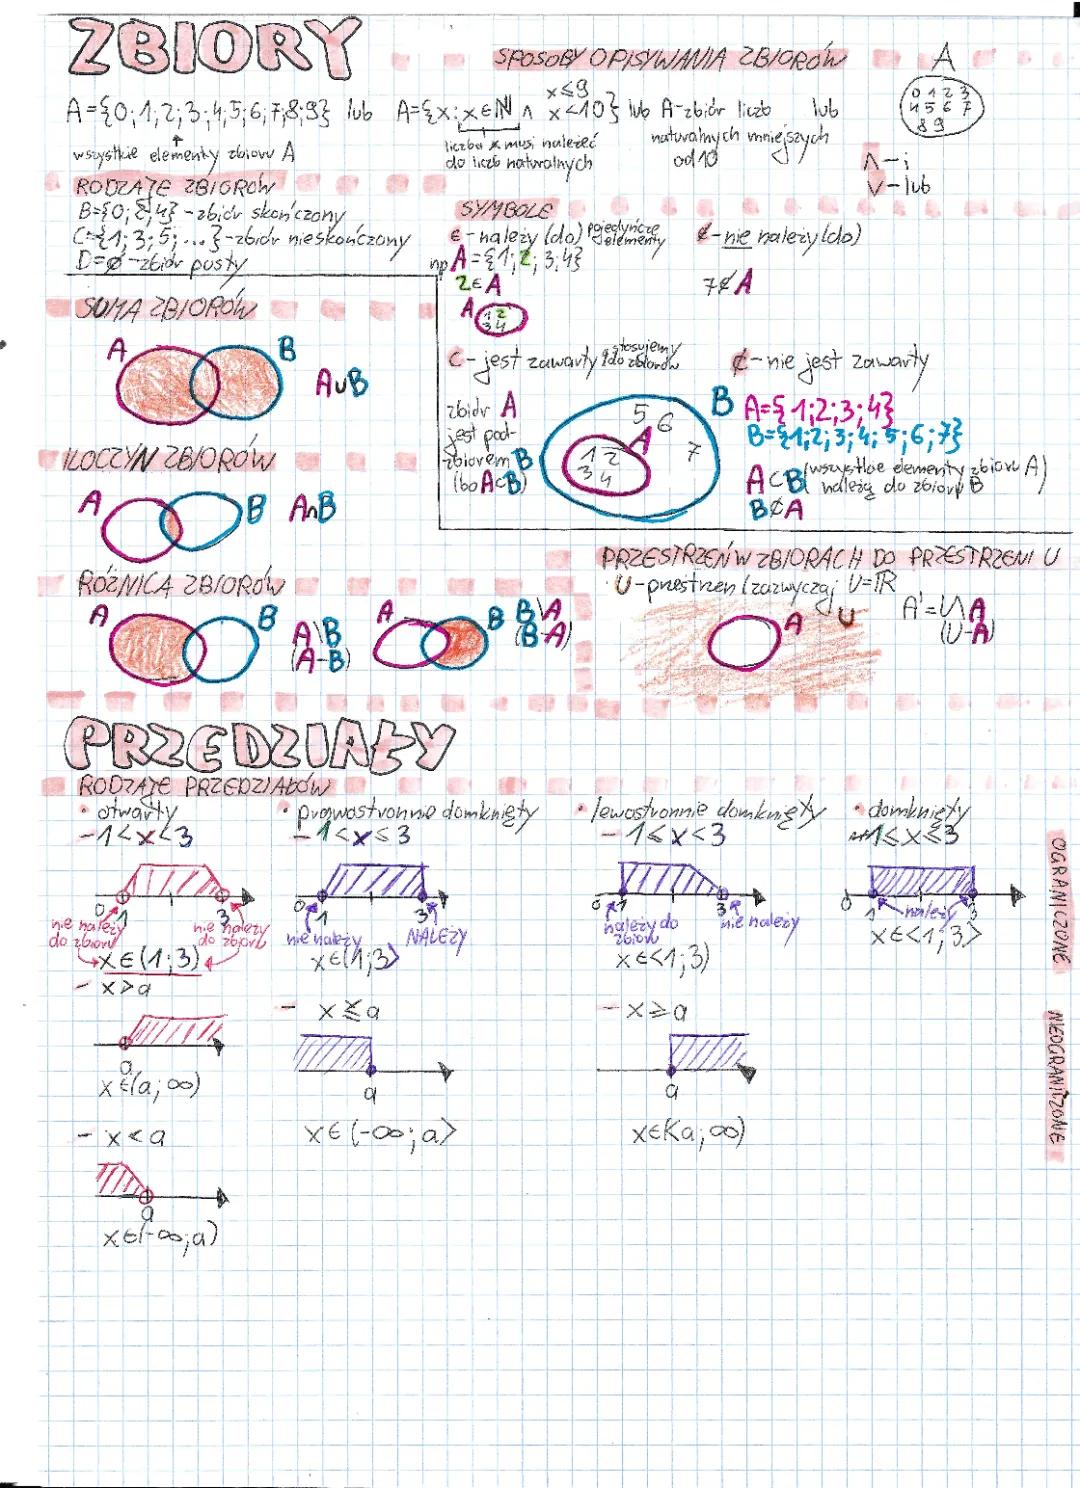 ZBIORY
SPOSOBY OPISYWANIA ZBIORÓW
A
0 1 2 3
4 5 6 7
8 9
A={0;1;2;3;4;5;6;7;8;9} lub A={x: x∈ℕ ∧ x<10} lub A-zbiór liczb lub
x≤9
naturalnych mniejszych
od 10
wszystkie elementy zbioru A
liczba x musi należeć
do liczb naturalnych
∧-i
∨-lub
RODZAJE ZBIORÓW
B={0; 2; 4} - zbiór skończony
C={1; 3; 5; ...} - zbiór nieskończony
D=ø - zbiór pusty
SYMBOLE
∈ - należy (do) pojedyncze elementy
∉ - nie należy (do)
np A={1; 2; 3; 4}
2∈A
7∉A
A
1 2
3 4
⊂ - jest zawarty stosujemy do zbiorów
⊄ - nie jest zawarty
zbiór A
jest pod-
zbiorem B
(bo A⊂B)
5 6
7
A
1 2
3 4
B
A={1;2;3;4}
B={1;2;3;4;5;6;7}
A⊂B (wszystkie elementy zbioru A)
należą do zbioru B
B⊄A
SUMA ZBIORÓW
A B
A∪B
ILOCZYN ZBIORÓW
A B A∩B
RÓŻNICA ZBIORÓW
A B A\B
(A-B)
A B B\A
(B-A)
PRZESTRZEŃ W ZBIORACH DO PRZESTRZENI U
U-przestrzeń (zazwyczaj U=ℝ
A U
A'=U\A
(U-A)
PRZEDZIAŁY
RODZAJE PRZEDZIAŁÓW
• otwarty
- 1<x<3
0 1 3
nie należy
do zbioru
nie należy
do zbioru
x∈(1;3)
- x>a
a
x∈(a;∞)
- x<a
a
x∈(-∞;a)
• prawostronnie domknięty
- 1<x≤3
0 1 3
nie należy
NALEŻY
x∈(1;3>
- x≤a
a
x∈(-∞;a>
• lewostronnie domknięty
- 1≤x<3
0 1 3
należy do
zbioru
nie należy
x∈<1;3)
- x≥a
a
x∈<a;∞)
• domknięty
1≤x≤3
0 1 3
należy
x∈<1;3>
OGRANICZONE
NIEOGRANICZONE